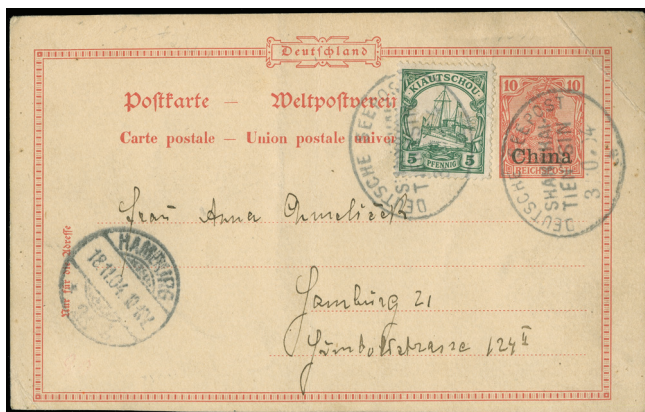 Deutschland
Postkarte — Weltpostverein
Carte postale — Union postale univer
KIAUTSCHOU
5 PFENNIG 5
10 10
China
REICHSPOST
DEUTSCHE SEEPOST
SHANGHAI
TIENTSIN
DEUTSCHE SEEPOST
SHANGHAI
TIENTSIN
Frau Anna
Nur für die Adresse
HAMBURG
18.11.04
Hamburg 21
Humboldstrasse 124 II